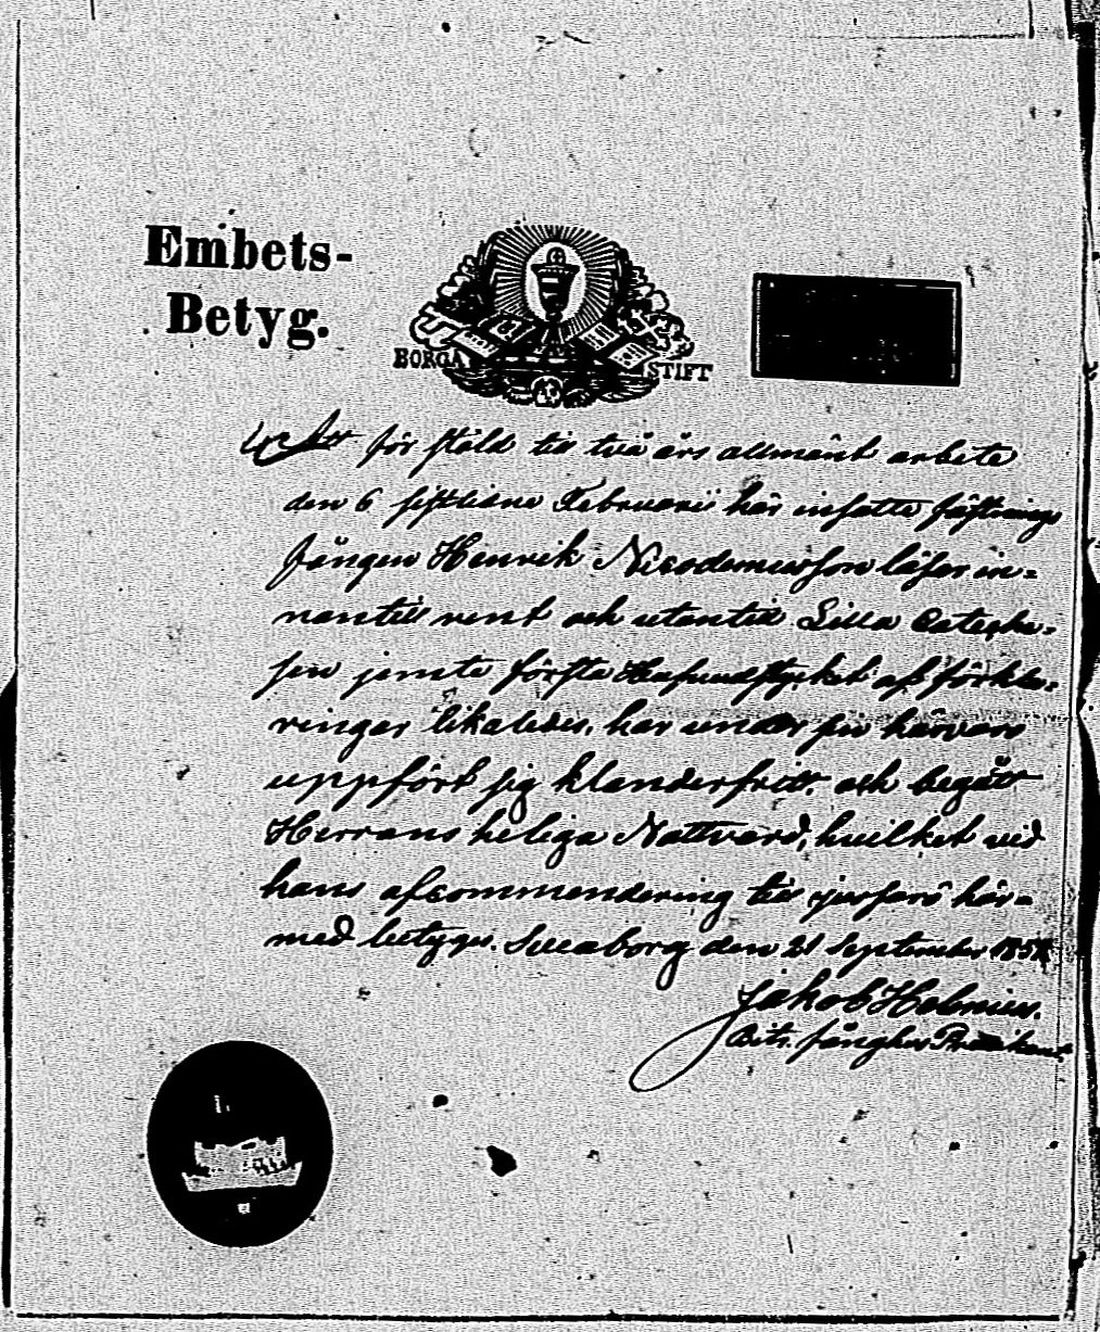 Embets-
Betyg.
BORGÅ STIFT
Att för stöld till två års allmänt arbete
den 6 sistlidne Februarii här insatte fästnings
fången Henrik Nicodemusson läser in-
nantill rent och utantill Lilla Cateche-
sen jemte första Hufvudstycket af förkla-
ringar likaledes, har under sin härvaro
uppfört sig klanderfritt och begått
Herrans heliga Nattvard, hvilket vid
hans afcommendering till här-
med betygas. Sveaborg den 21 September
Jakob
Bitr. fånghus Predikant